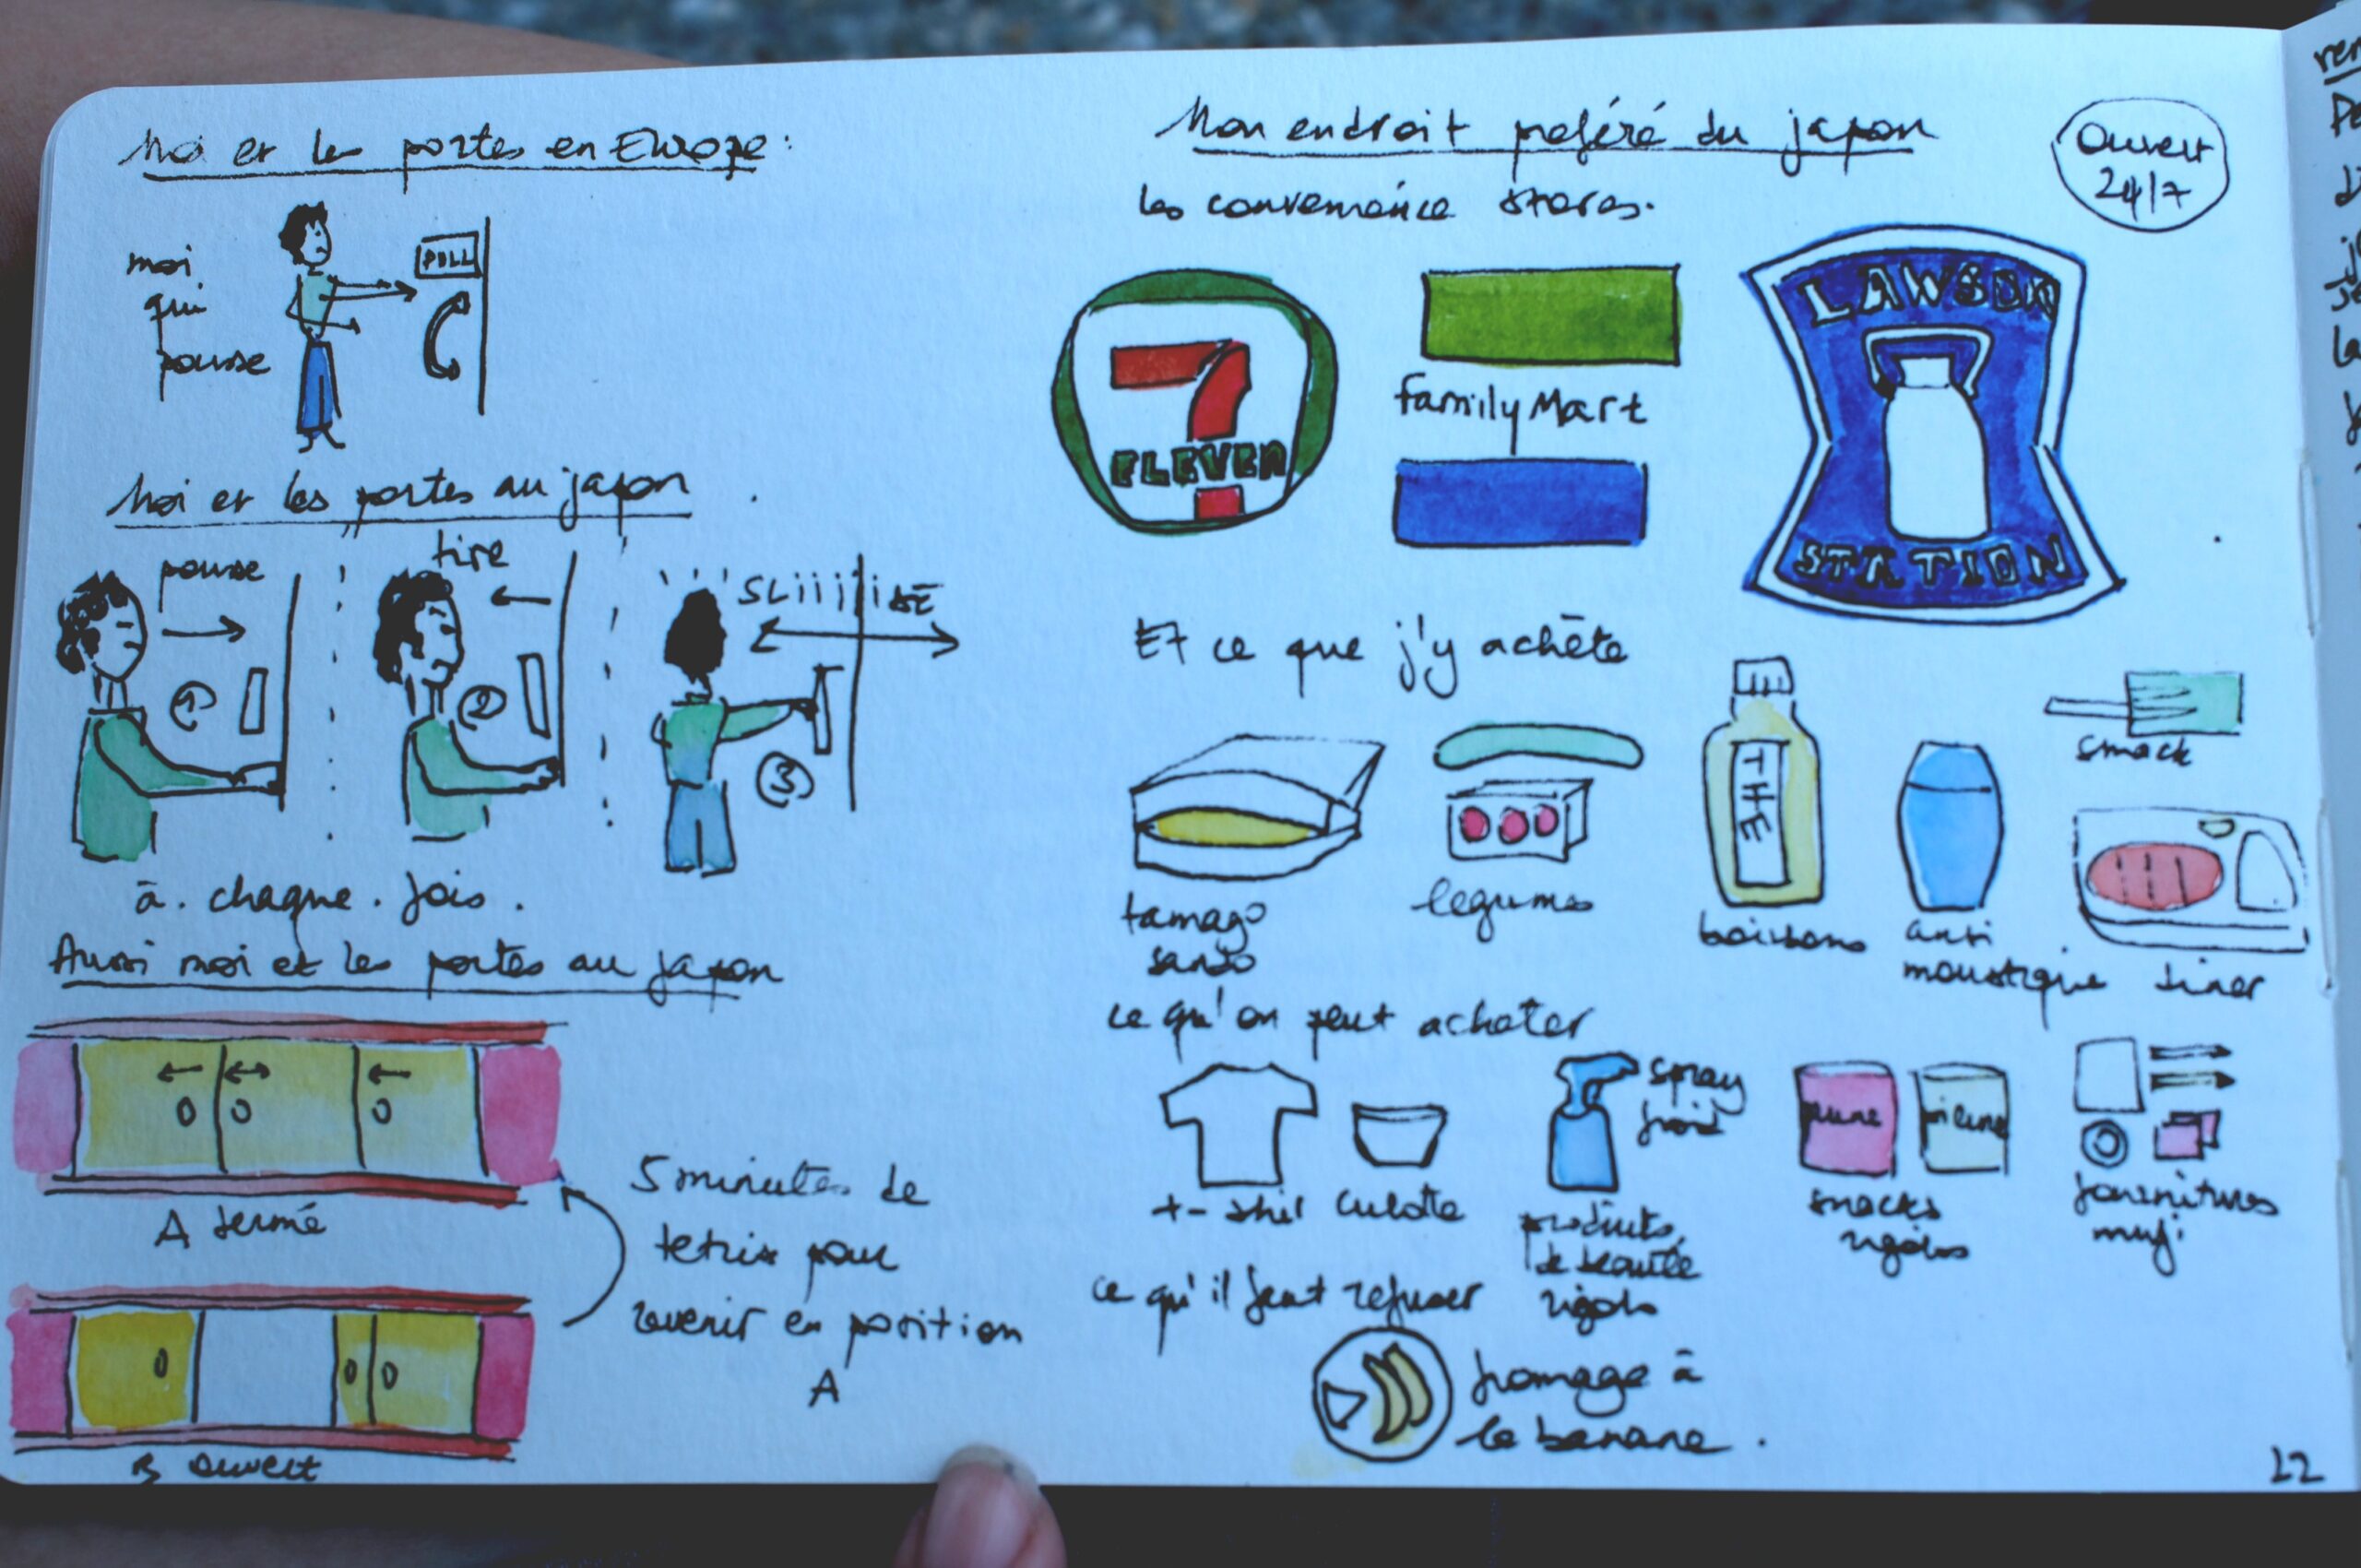 Moi et les portes en Europe :
moi
qui
pousse
PULL
Moi et les portes au japon
pousse
tire
SLiiiiiDE
1
2
3
à. chaque. fois.
Aussi moi et les portes au japon
A fermé
5 minutes de
tetris pour
revenir en position
A
B ouvert
Mon endroit preféré du japon
Ouvert
24/7
les convenience stores.
7
ELEVEN
family Mart
LAWSON
STATION
Et ce que j'y achète
THE
smack
tamago
sando
legumes
boissons
anti
moustique
diner
ce qu'on peut acheter
spray
froid
prune
t-shir
culotte
produits
de beauté
rigolo
snacks
rigolos
fournitures
muji
ce qu'il faut refuser
fromage à
la banane.
22